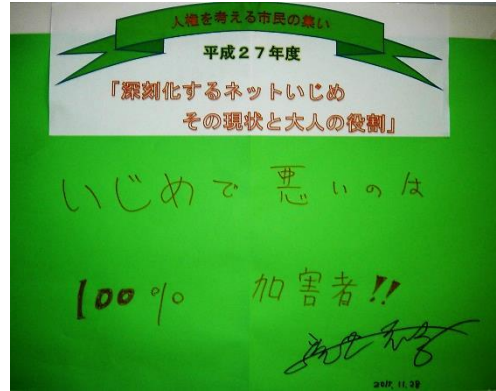 人権を考える市民の集い
平成27年度
「深刻化するネットいじめ
その現状と大人の役割」
いじめで悪いのは
100% 加害者!!
2015.11.28